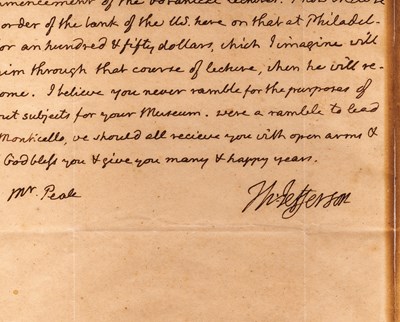 mmencement of the botanical lectures. I now inclose
order of the bank of the U.S. here on that at Philadel-
for an hundred & fifty dollars, which I imagine will
him through that course of lecture, when he will re-
ome. I believe you never ramble for the purposes of
out subjects for your Museum. were a ramble to lead
Monticello, we should all recieve you with open arms &
God bless you & give you many & happy years.
Mr. Peale
Th: Jefferson